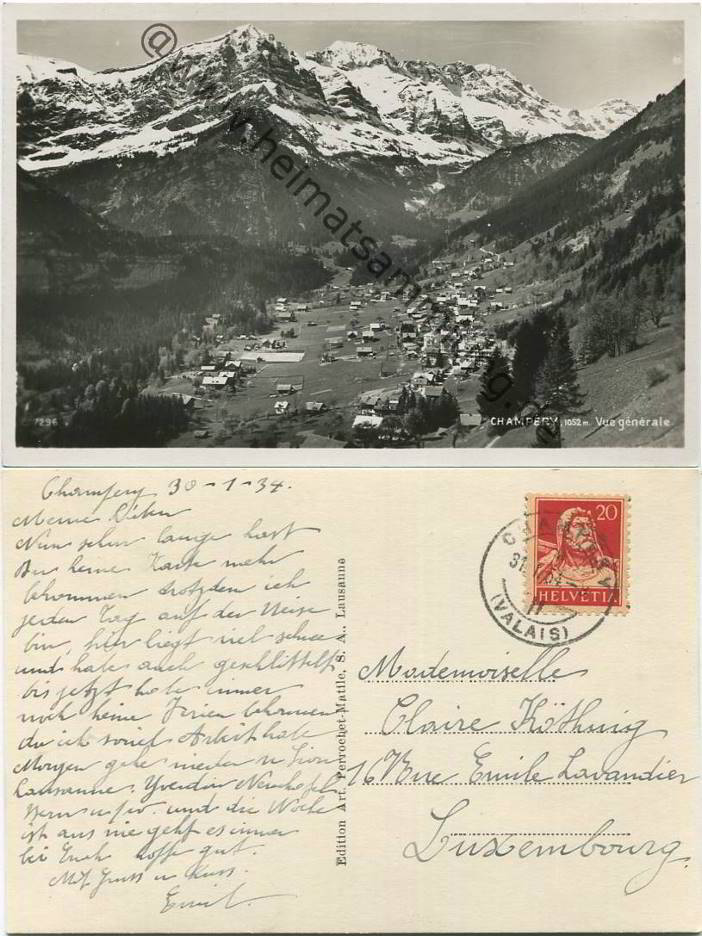 @www.heimatsammlung.de
7296
CHAMPÉRY, 1052 m. Vue générale
Champery 30-1-34.
Meine
Nun schon lange hast
Du keine Karte mehr
bekommen trotzdem ich
jeden Tag auf der Reise
bin, hier liegt viel Schnee
und habe auch geschlittelt
bis jetzt habe immer
noch keine Ferien bekommen
da ich soviel Arbeit habe
Morgen gehe weiter n Sion
Lausanne. Yverdon
Bern u.s.w. und die Woche
ist aus wie geht es immer
bei Euch hoffe gut.
Mit Gruss u Kuss.
Emil.
Edition Art. Perrochet-Matile, S. A., Lausanne
20
HELVETIA
CHAMPÉRY
31.I.34
(VALAIS)
Mademoiselle
Claire
16 Rue Emile Lavandier
Luxembourg.